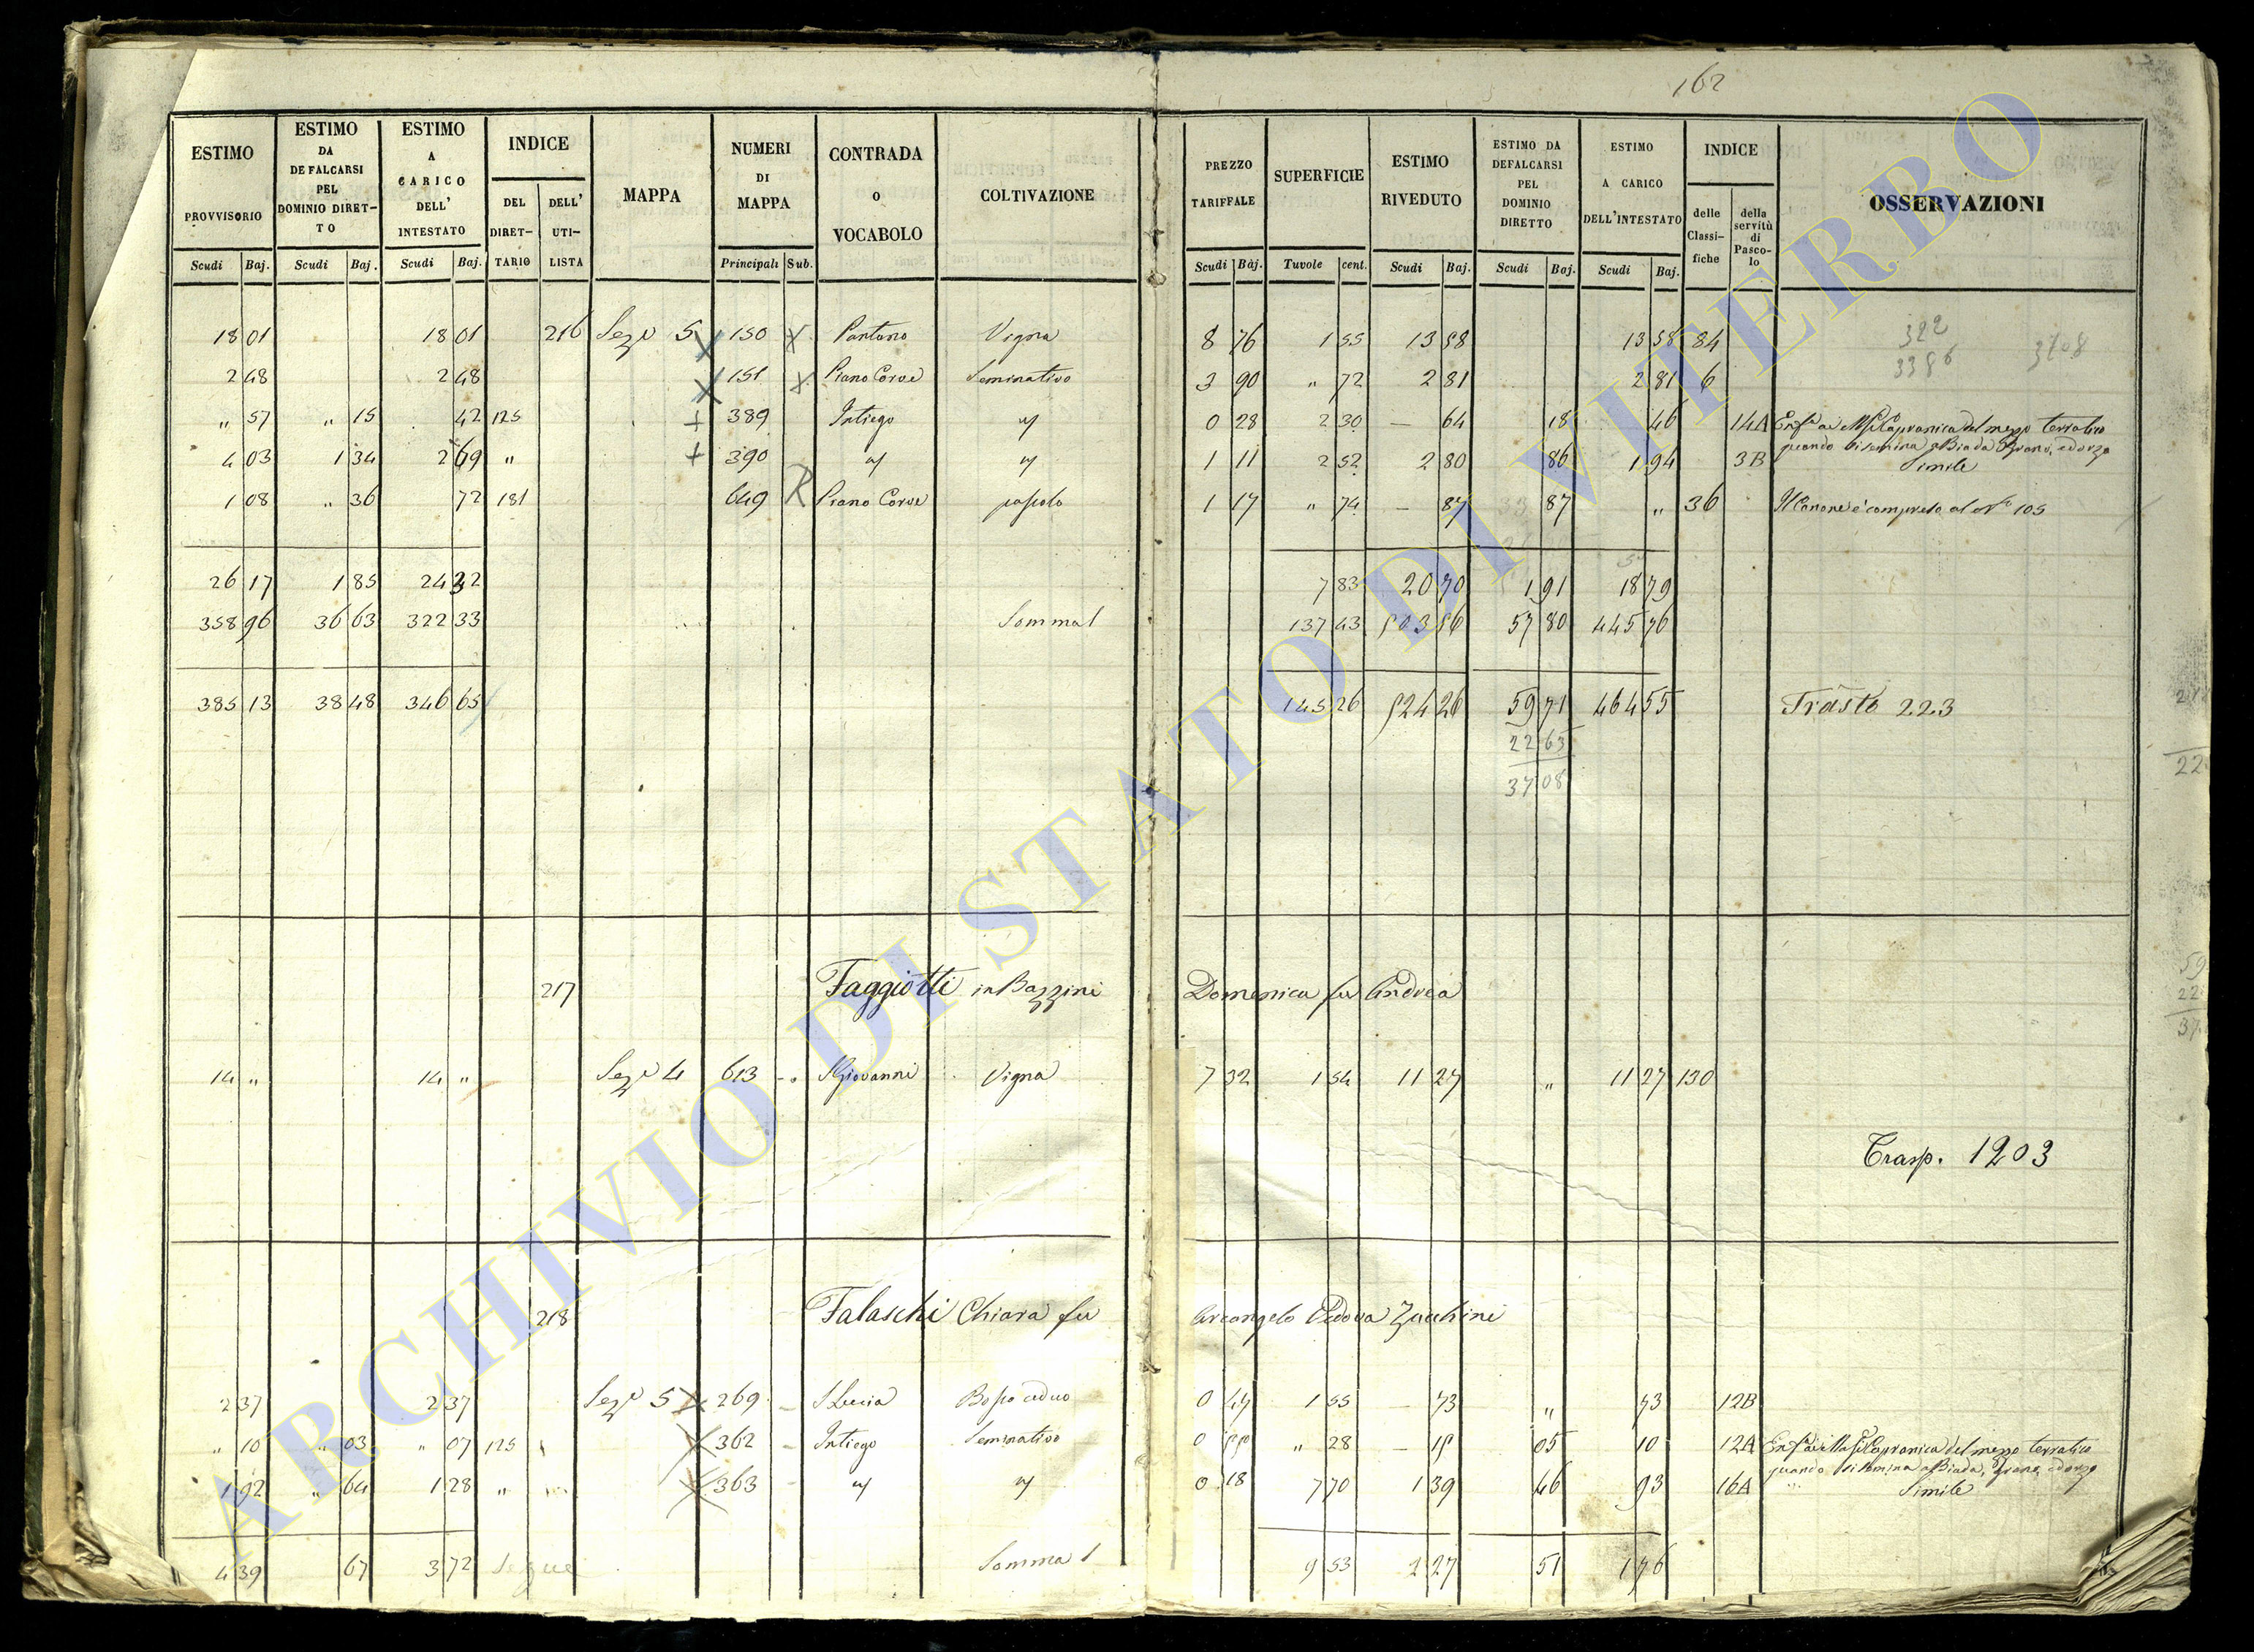 162
ESTIMO PROVVISORIO Scudi Baj.
ESTIMO DA DEFALCARSI PEL DOMINIO DIRETTO Scudi Baj.
ESTIMO A CARICO DELL' INTESTATO Scudi Baj.
INDICE DEL DIRET-TARIO DELL' UTI-LISTA
MAPPA
NUMERI DI MAPPA Principali Sub.
CONTRADA o VOCABOLO
COLTIVAZIONE
PREZZO TARIFFALE Scudi Baj.
SUPERFICIE Tavole cent.
ESTIMO RIVEDUTO Scudi Baj.
ESTIMO DA DEFALCARSI PEL DOMINIO DIRETTO Scudi Baj.
ESTIMO A CARICO DELL'INTESTATO Scudi Baj.
INDICE delle Classi-fiche della servitù di Pasco-lo
OSSERVAZIONI
18 01 18 01 216 Sez. 5 150 Pantano Vigna 8 76 1 55 13 58 13 58 84 322 3708
3386
2 48 2 48 151 Piano Corve Seminativo 3 90 " 72 2 81 2 81 6
" 57 " 15 42 125 389 Intiego 0 28 2 30 — 64 18 46 14A Capranica del mezzo terratico
quando si semina a Biada Grano, ed orzo
4 03 1 34 2 69 " 390 1 11 2 52 2 80 86 1 94 3B Simile
1 08 " 36 72 181 649 R Piano Corve pascolo 1 17 " 74 — 87 87 " 36 Il Canone è compreso al N. 105
26 17 1 85 24 32 7 83 20 70 1 91 18 79
358 96 36 63 322 33 Somma 137 43 503 56 57 80 445 76
385 13 38 48 346 65 145 26 524 26 59 71 464 55 Trasto 223
22 63
37 08
217 Faggiotti in Bazzini Domenica fu Andrea
14 " 14 " Sez. 4 613 S Giovanni Vigna 7 32 1 54 11 27 " 11 27 130
Trasp. 1203
218 Falaschi Chiara fu Arcangelo Vedova Zucchini
2 37 2 37 Sez. 5 269 S Lucia Bosco ceduo 0 47 1 55 — 73 " 73 12B
" 10 " 03 " 07 125 362 Intiego Seminativo 0 55 " 28 — 15 05 10 12A Capranica del mezzo terratico
quando si semina a Biada, Grano, ed orzo
1 92 " 64 1 28 " 363 0 18 7 70 1 39 46 93 16A Simile
4 39 67 3 72 Segue Somma 9 53 2 27 51 1 76
ARCHIVIO DI STATO DI VITERBO